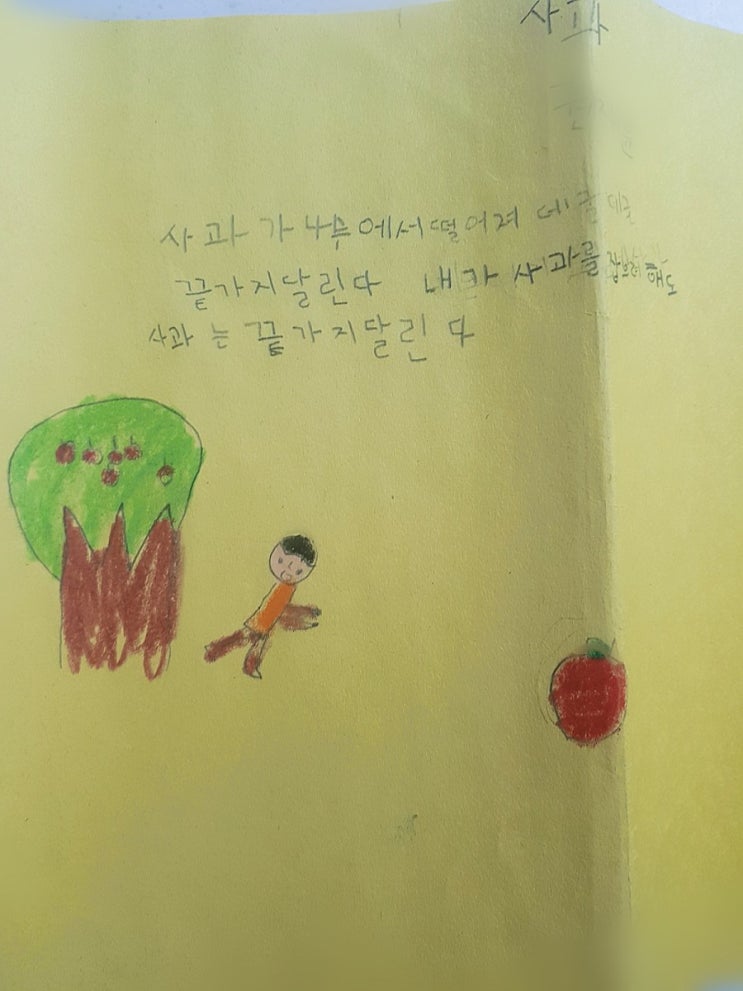 사과
사과가 나무에서 떨어져 데굴데굴
끝가지달린다 내가 사과를 잡으려해도
사과는 끝가지달린다